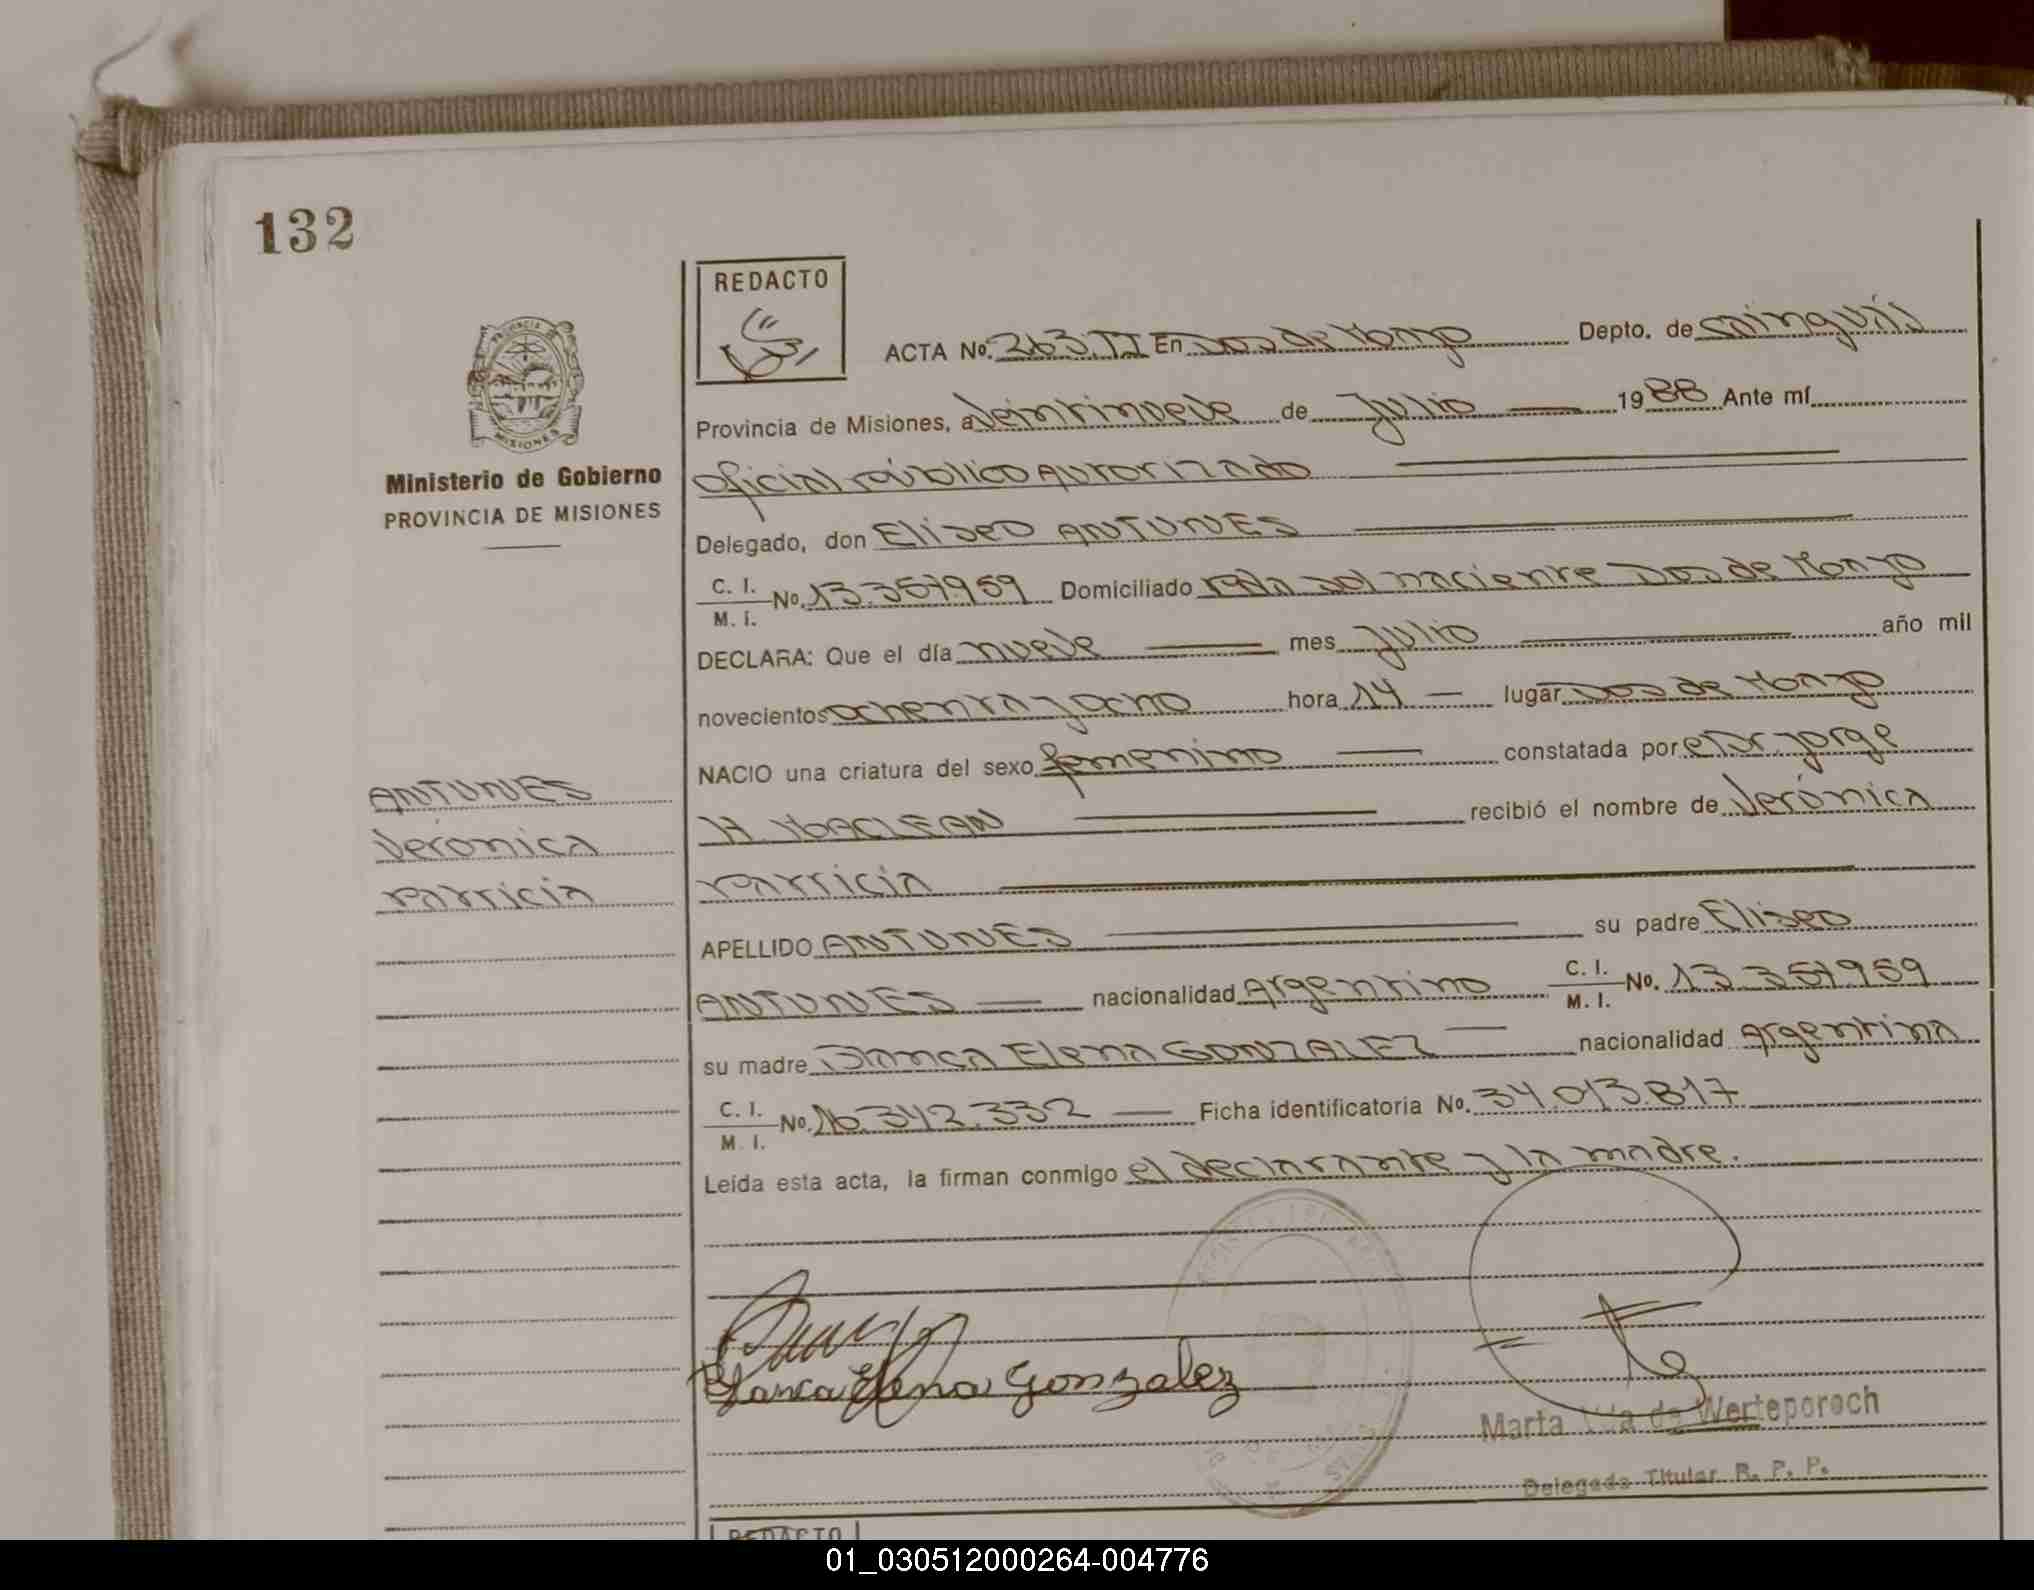 132
REDACTO
ACTA No. 263.TI En Dos de Mayo Depto. de Cainguás
Provincia de Misiones, a veintinueve de Julio 1988 Ante mí
Oficial Público Autorizado
PROVINCIA DE
MISIONES
Ministerio de Gobierno
PROVINCIA DE MISIONES
Delegado, don Eliseo ANTUNES
C. I.
M. I. No. 13.357.959 Domiciliado Pcla Sol naciente Dos de Mayo
DECLARA: Que el día nueve mes Julio año mil
novecientos ochenta y ocho hora 14 lugar Dos de Mayo
NACIO una criatura del sexo femenino constatada por Jorge
ANTUNES
Verónica
Patricia
H. MACLEAN recibió el nombre de Verónica
Patricia
APELLIDO ANTUNES su padre Eliseo
ANTUNES nacionalidad Argentino C. I.
M. I. No. 13.357.959
su madre Blanca Elena GONZALEZ nacionalidad Argentina
C. I.
M. I. No. 16.342.332 Ficha identificatoria No. 34.013.817
Leída esta acta, la firman conmigo el declarante y la madre.
Blanca Elena Gonzalez
Marta Vda de Werteporoch
Delegada Titular R. P. P.
REDACTO
01_030512000264-004776